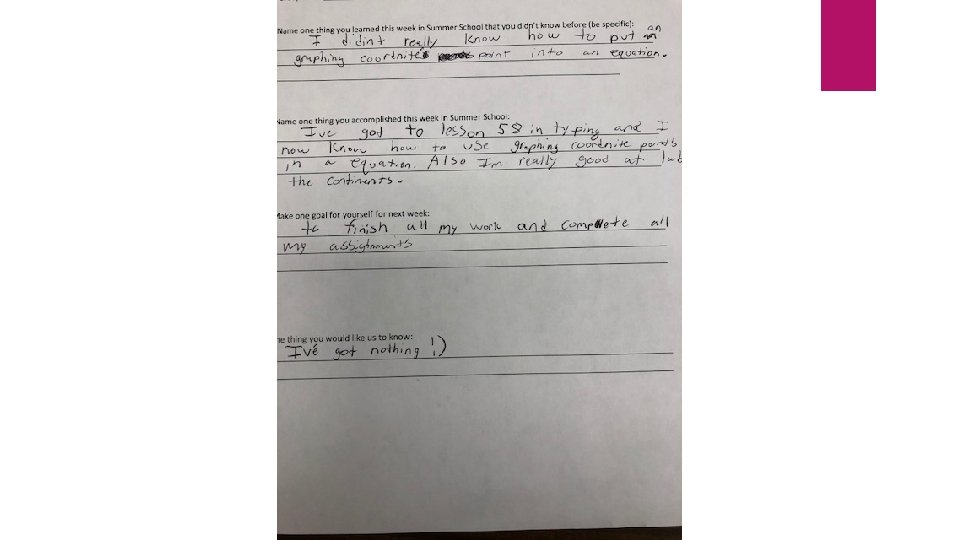 Name one thing you learned this week in Summer School that you didn't know before (be specific):
I didint really know how to put an
graphing coordnites point into an equation.
Name one thing you accomplished this week in Summer School:
Ive god to lesson 58 in typing and I
now know how to use graphing coordnite points
in a equation. Also I'm really good at
the continents.
Make one goal for yourself for next week:
to finish all my work and complete all
my assighments
ne thing you would like us to know:
I've got nothing !)